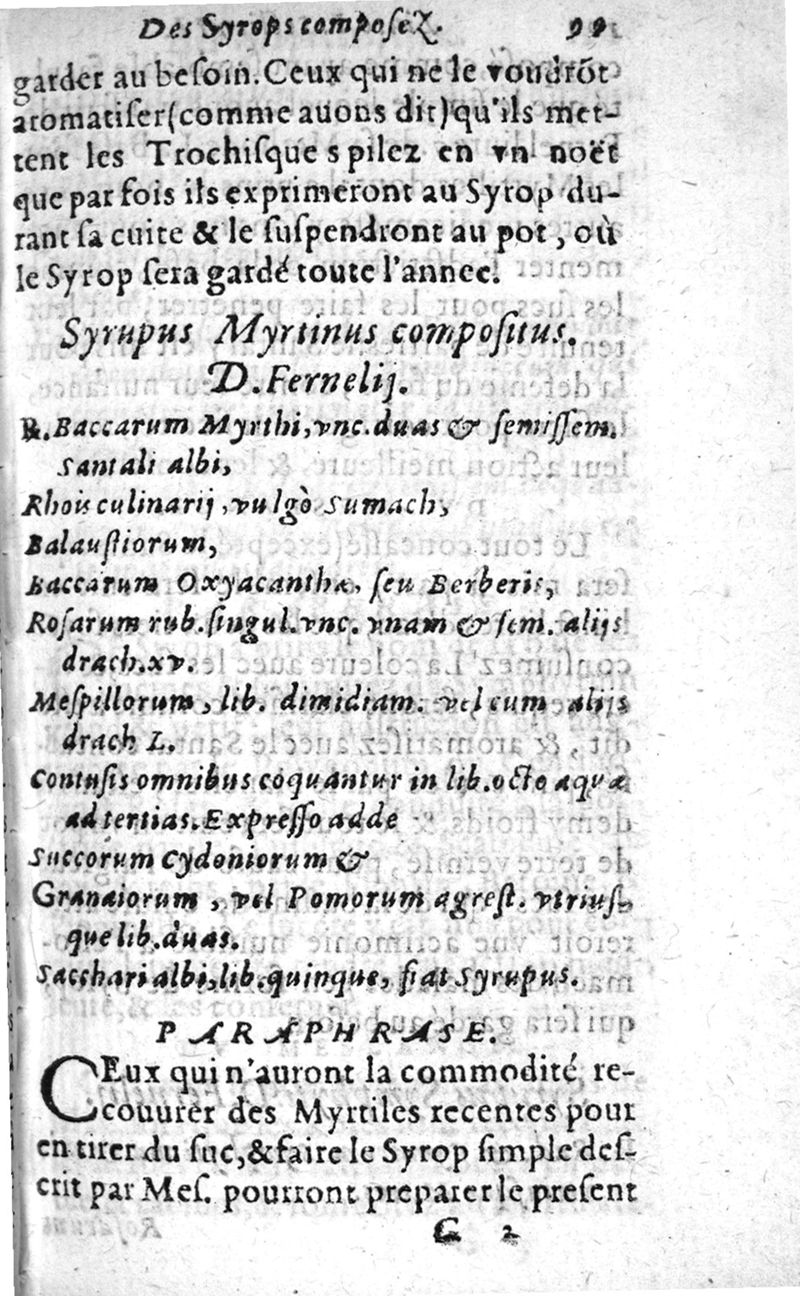 Des Syrops compoſeZ. 99
garder au beſoin. Ceux qui ne le voudrõt
aromatiſer (comme auons dit) qu'ils met-
tent les Trochiſques pilez en vn noët
que par fois ils exprimeront au Syrop du-
rant ſa cuite & le ſuſpendront au pot, où
le Syrop ſera gardé toute l'annee.
Syrupus Myrtinus compoſitus.
D. Fernelij.
℞. Baccarum Myrthi, vnc. duas & ſemiſſem.
Santali albi,
Rhois culinarij, vulgò Sumach,
Balauſtiorum,
Baccarum Oxyacanthæ, ſeu Berberis,
Roſarum rub. ſingul. vnc. vnam & ſem. alijs
drach. xv.
Meſpillorum, lib. dimidiam. vel cum alijs
drach L.
Contuſis omnibus coquantur in lib. octo aquæ
ad tertias. Expreſſo adde
Succorum Cydoniorum &
Granatorum, vel Pomorum agreſt. vtriuſ-
que lib. duas.
Sacchari albi, lib. quinque, fiat Syrupus.
PARAPHRASE.
CEux qui n'auront la commodité re-
couurer des Myrtiles recentes pour
en tirer du ſuc, & faire le Syrop ſimple deſ-
crit par Meſ. pourront preparer le preſent
G 2